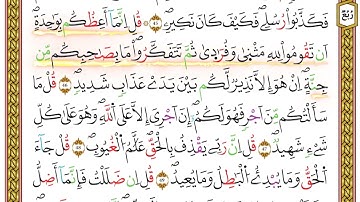 فَكَذَّبُوا۟ رُسُلِى ۖ فَكَيْفَ كَانَ نَكِيرِ ﴿٤٥﴾ ۞ قُلْ إِنَّمَآ أَعِظُكُم بِوَٰحِدَةٍ ۖ
أَن تَقُومُوا۟ لِلَّهِ مَثْنَىٰ وَفُرَٰدَىٰ ثُمَّ تَتَفَكَّرُوا۟ ۚ مَا بِصَاحِبِكُم مِّن
جِنَّةٍ ۚ إِنْ هُوَ إِلَّا نَذِيرٌ لَّكُم بَيْنَ يَدَىْ عَذَابٍ شَدِيدٍ ﴿٤٦﴾ قُلْ مَا
سَأَلْتُكُم مِّنْ أَجْرٍ فَهُوَ لَكُمْ ۖ إِنْ أَجْرِىَ إِلَّا عَلَى ٱللَّهِ ۖ وَهُوَ عَلَىٰ كُلِّ
شَىْءٍ شَهِيدٌ ﴿٤٧﴾ قُلْ إِنَّ رَبِّى يَقْذِفُ بِٱلْحَقِّ عَلَّٰمُ ٱلْغُيُوبِ ﴿٤٨﴾ قُلْ جَآءَ
ٱلْحَقُّ وَمَا يُبْدِئُ ٱلْبَٰطِلُ وَمَا يُعِيدُ ﴿٤٩﴾ قُلْ إِن ضَلَلْتُ فَإِنَّمَآ أَضِلُّ
ربع